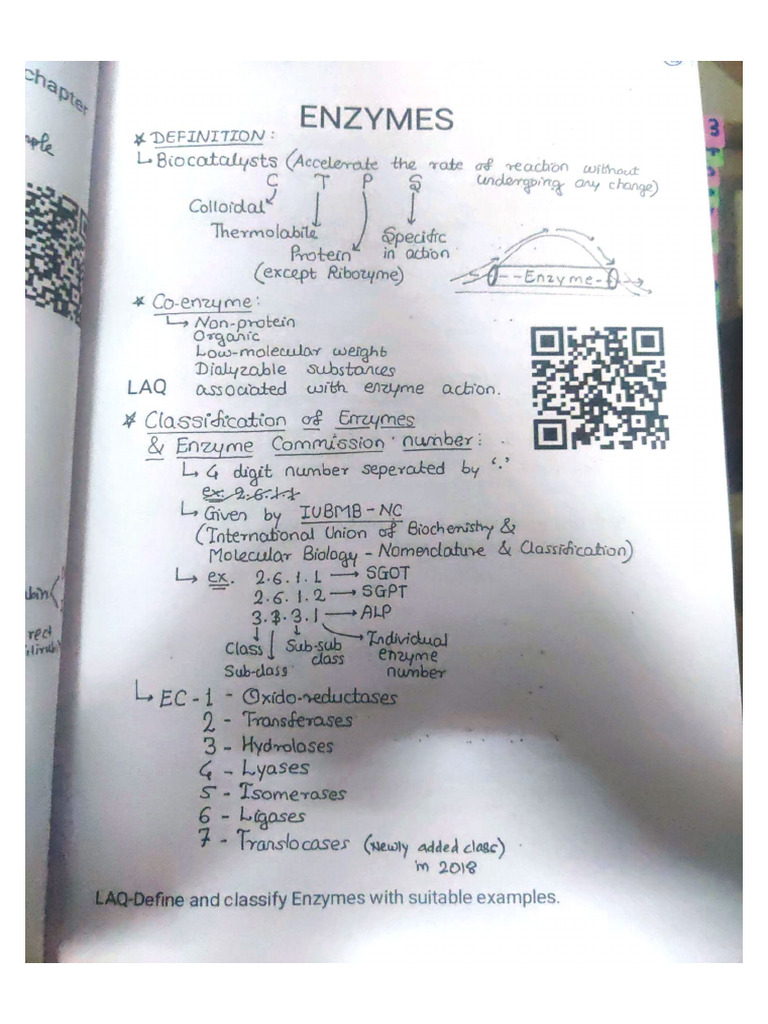 chapter
ENZYMES
* DEFINITION:
↳ Biocatalysts (Accelerate the rate of reaction without
C T P S undergoing any change)
Colloidal
Thermolabile
Protein Specific
(except Ribozyme) in action
--Enzyme-
* Co-enzyme:
↳ Non-protein
Organic
Low-molecular weight
Dialyzable substances
LAQ associated with enzyme action.
* Classification of Enzymes
& Enzyme Commission number:
↳ 4 digit number seperated by '.'
ex. 2.6.1.1
↳ Given by IUBMB-NC
(International Union of Biochemistry &
Molecular Biology - Nomenclature & Classification)
↳ ex. 2.6.1.1 → SGOT
2.6.1.2 → SGPT
3.1.3.1 → ALP
Class Sub-sub class Individual enzyme number
Sub-class
↳ EC-1 - Oxido-reductases
2 - Transferases
3 - Hydrolases
4 - Lyases
5 - Isomerases
6 - Ligases
7 - Translocases (Newly added class)
in 2018
LAQ-Define and classify Enzymes with suitable examples.
3